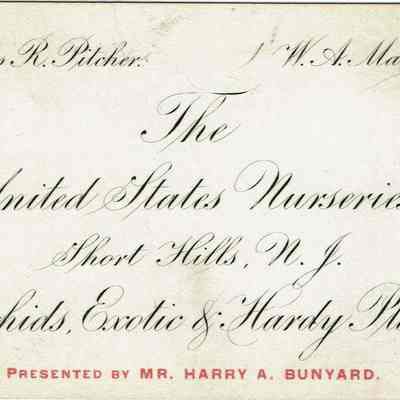 s R. Pitcher. W. A. Ma
The
United States Nurseries
Short Hills, N. J.
chids, Exotic & Hardy Pla
PRESENTED BY MR. HARRY A. BUNYARD.